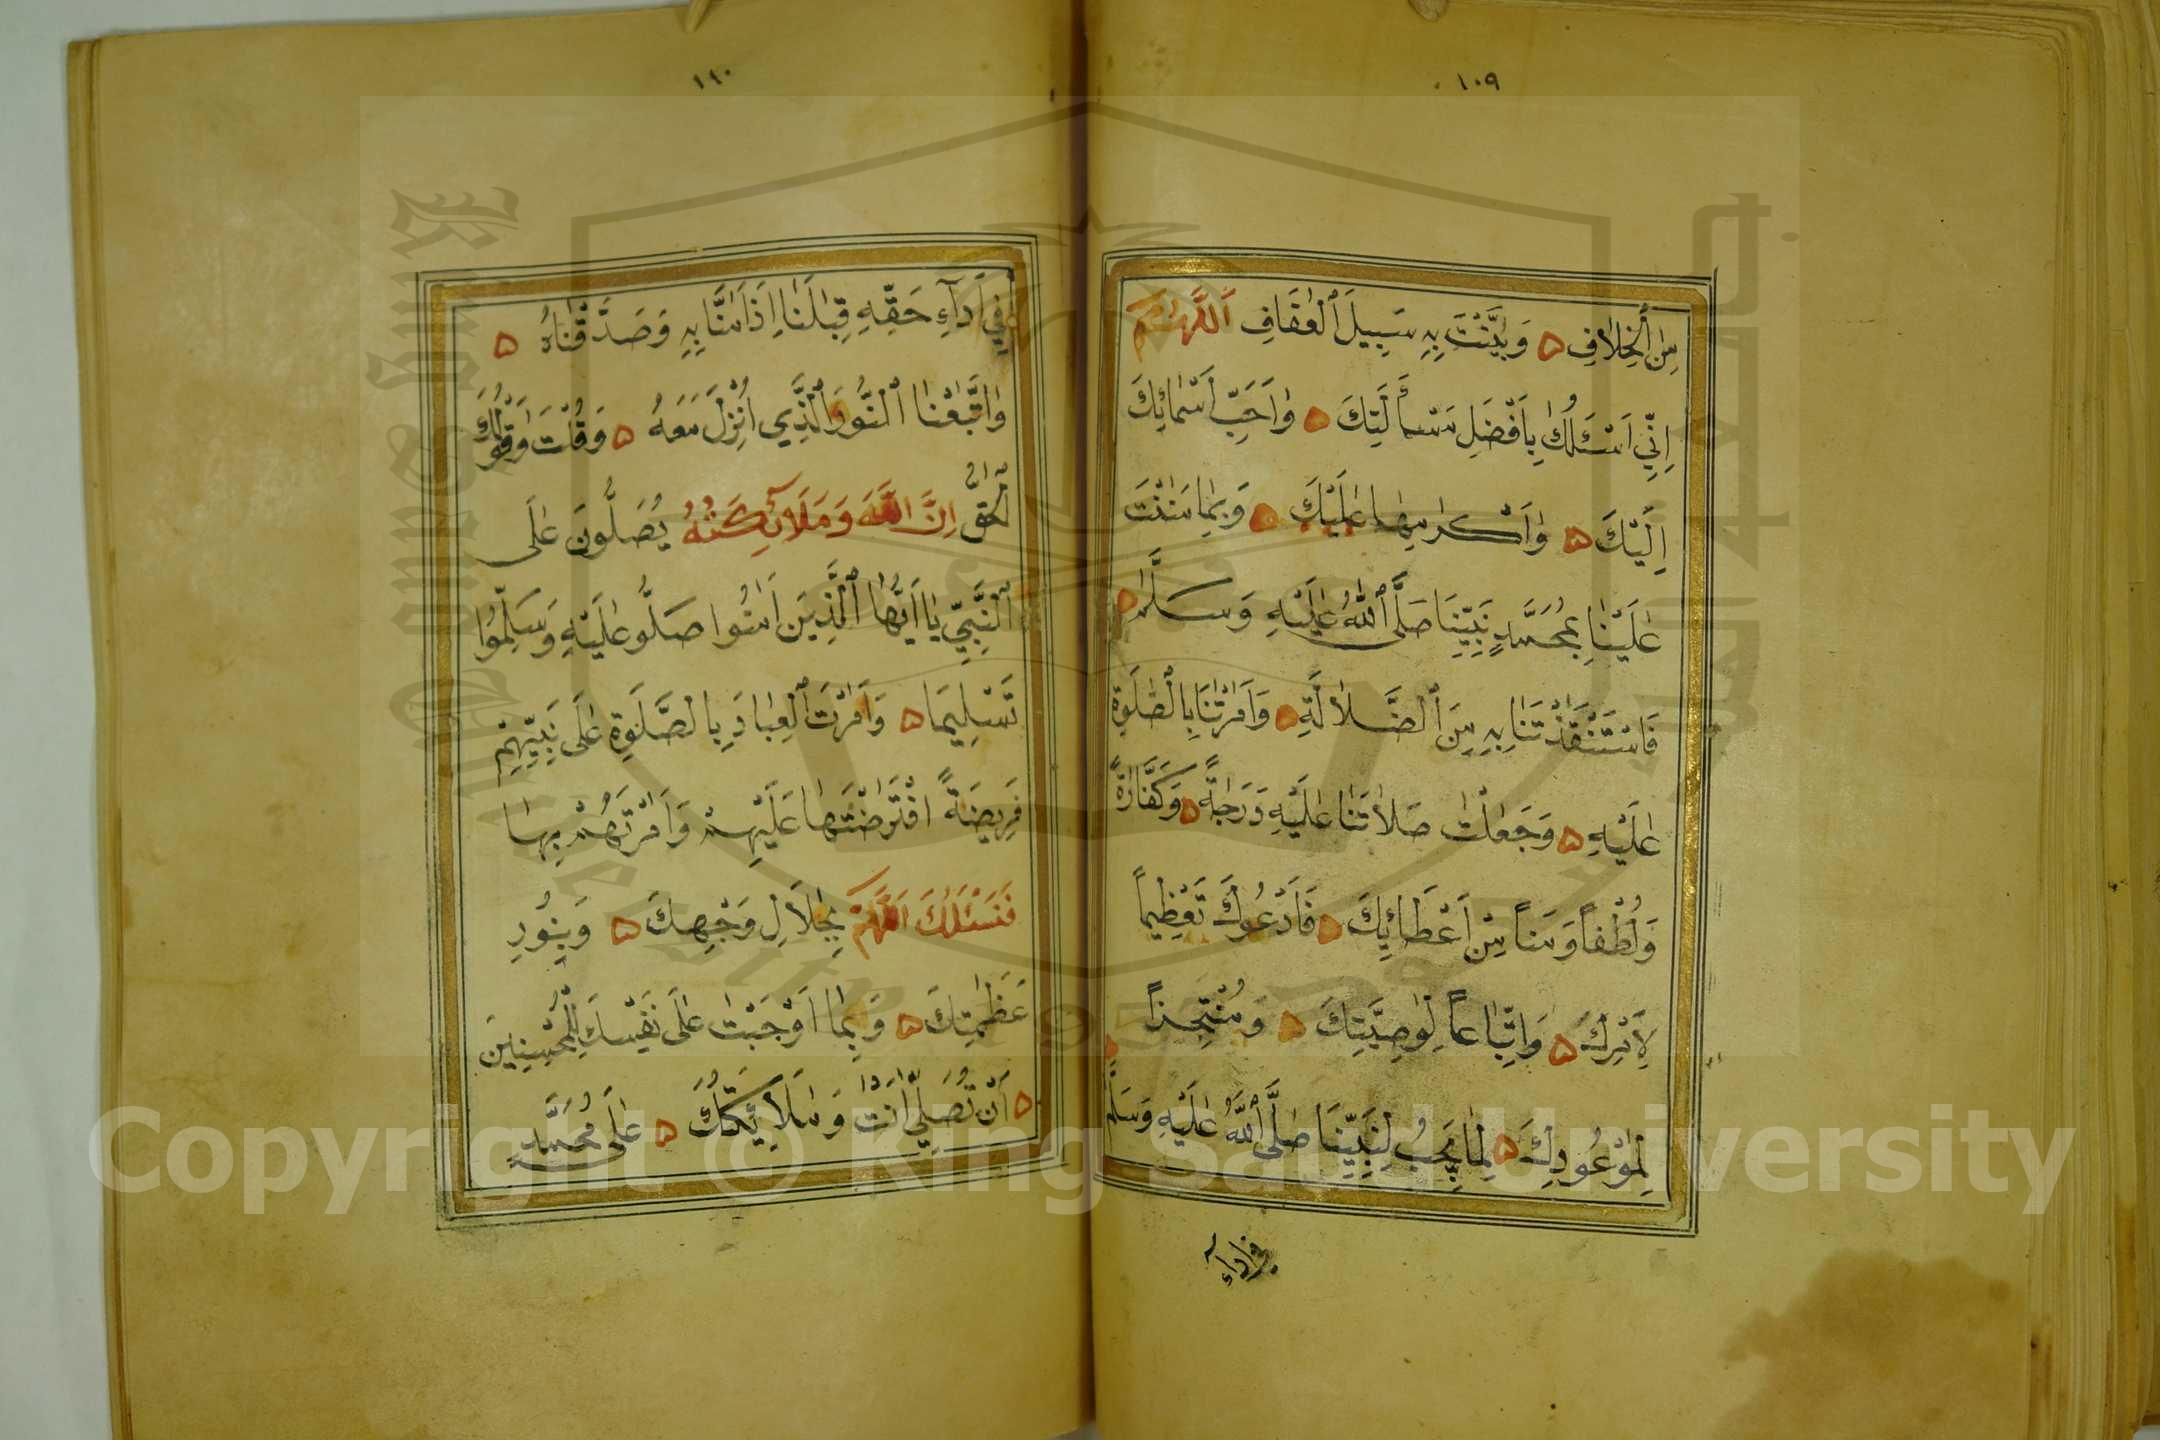 ١٠٩
مِنَ الْخِلَافِ ۵ وَبَيَّنْتَ بِهِ سَبِيلَ ٱلْعَفَافِ اَللّٰهُمَّ
اِنِّي اَسْئَلُكَ بِاَفْضَلِ مَسْأَلَتِكَ ۵ وَاَحَبِّ اَسْمَائِكَ
اِلَيْكَ ۵ وَاَكْرَمِهَا عَلَيْكَ ۵ وَبِمَا مَنَنْتَ
عَلَيْنَا بِمُحَمَّدٍ نَبِيِّنَا صَلَّى ٱللّٰهُ عَلَيْهِ وَسَلَّمَ ۵
فَاسْتَنْقَذْتَنَا بِهِ مِنَ ٱلضَّلَالَةِ ۵ وَاَمَرْتَنَا بِالصَّلٰوةِ
عَلَيْهِ ۵ وَجَعَلْتَ صَلَاتَنَا عَلَيْهِ دَرَجَةً ۵ وَكَفَّارَةً
وَلُطْفاً وَمَناً مِنْ اَعْطَائِكَ ۵ فَاَدْعُوكَ تَعْظِيماً
لِاَمْرِكَ ۵ وَاتِّبَاعاً لِوَصِيَّتِكَ ۵ وَمُنْتَجِزاً
لِمَوْعُودِكَ ۵ لِمَا يَجِبُ لِنَبِيِّنَا صَلَّى ٱللّٰهُ عَلَيْهِ وَسَلَّمَ ۵
في اداء
١١٠
فِي اَدَآءِ حَقِّهِ قِبَلَنَا اِذْ اٰمَنَّا بِهِ وَصَدَّقْنَاهُ ۵
وَاتَّبَعْنَا ٱلنُّورَ ٱلَّذِي اُنْزِلَ مَعَهُ ۵ وَقُلْتَ وَقَوْلُكَ
ٱلْحَقُّ اِنَّ ٱللّٰهَ وَمَلَآئِكَتَهُ يُصَلُّونَ عَلَى
ٱلنَّبِيِّ يَا اَيُّهَا ٱلَّذِينَ اٰمَنُوا صَلُّو عَلَيْهِ وَسَلِّمُوا
تَسْلِيمَا ۵ وَاَمَرْتَ ٱلْعِبَادَ بِالصَّلٰوةِ عَلَى نَبِيِّهِمْ
فَرِيضَةً افْتَرَضْتَهَا عَلَيْهِمْ وَاَمَرْتَهُمْ بِهَا
فَنَسْئَلُكَ اَللّٰهُمَّ بِجَلَالِ وَجْهِكَ ۵ وَبِنُورِ
عَظَمَتِكَ ۵ وَبِمَا اَوْجَبْتَ عَلَى نَفْسِكَ لِلْمُحْسِنِينَ
۵ اَنْ تُصَلِّيَ اَنْتَ وَمَلَائِكَتُكَ ۵ عَلَى مُحَمَّدٍ
King Saud University
1957
Copyright © King Saud University